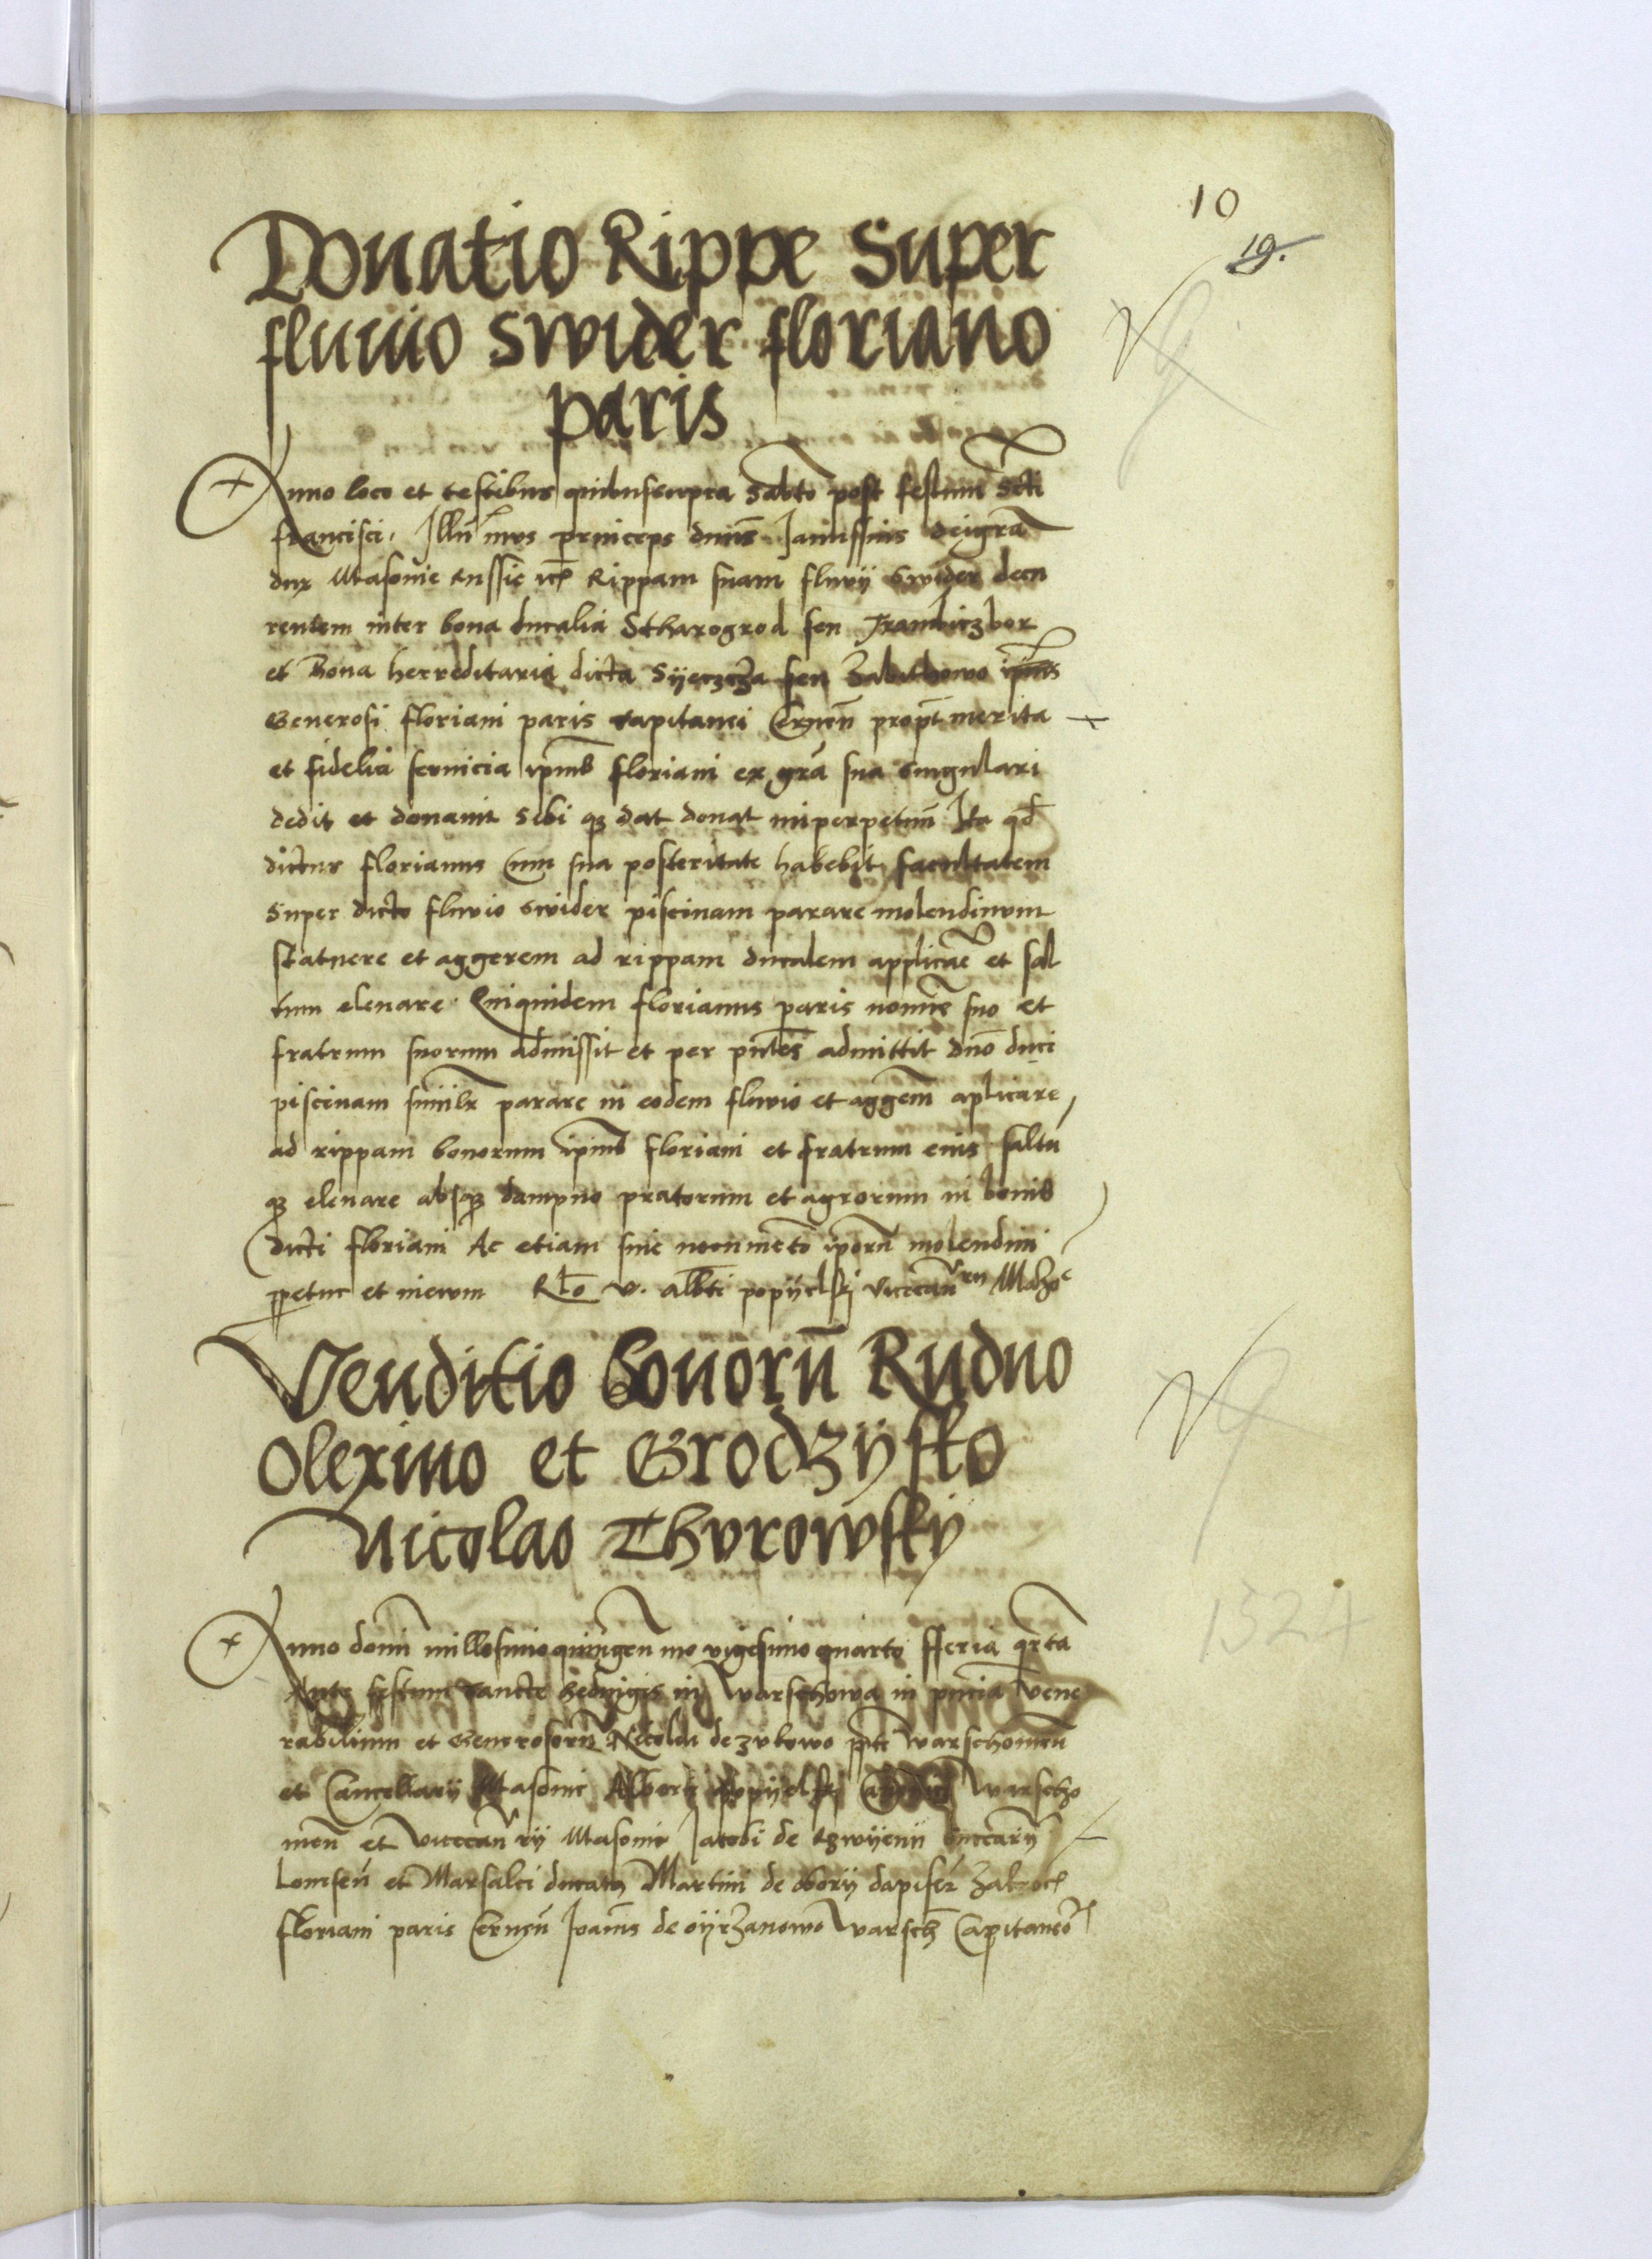 10
19.
Donatio Rippe Super
fluuio Swider floriano
paris
Anno loco et testibus quibus supra Sabto post festum Scti
francisci. Illu mus princeps dnus Janussius deigra
dux Masouie Russie etc Rippam suam fluvij Swider decu
rentem inter bona ducalia Stharogrod seu Trambiczbor
et Bona herreditaria dicta Syeczcza seu Zabithowo ipius
Generosi floriani paris Capitanei Cernen propt merita
et fidelia seruicia ipius floriani ex gra sua singulari
dedit et donauit Sibi qz dat donat inperpetuu Ita qd
dictus florianus cum sua posteritate habebit facultatem
Super dicto fluvio Swider piscinam parare molendinvm
statuere et aggerem ad rippam ducalem applicae et sal
tum eleuare Quiquidem florianus paris nomie suo et
fratrum suorum admissit et per pntes admittit dno duci
piscinam similr parare in eodem fluvio et aggem aplicare
ad rippam bonorum ipius floriani et fratrum eius saltu
qz eleuare absqz dampno pratorum et agrorum in bonis
dicti floriani Ac etiam sine nocumeto iporu molendini
ppetue et in ewm Rlo v. Albti popijelskj vicecan rij Mazoe
Venditio Bonoru Rudno
Olexino et Grodzijsko
Nicolao Thvrowskij
Anno domi millesimo quingen mo vigesimo quarto fferia qrta
Ante festum sancte hedvigis in Warschowa in pncia Vene
rabilium et Generosoru Nicolai de zvkowo ppti Warschouien
et Cancellarij Masouie Alberti Popijelskj Warscho
uien et vicecan rij Masouie Jacobi de Buccarij
Lomsen et Marsalci ducatus Martini de oborij dapiferi Zakroc
floriani paris Cernen Joanis de oijrzanowo Warsch Capitaneor
1524